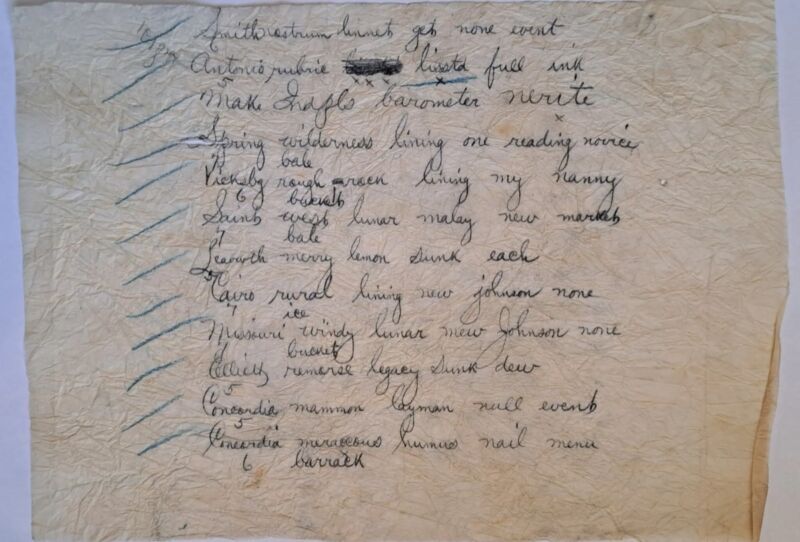 Smith rostrum linnet get none event
Antonio rubric linsta full ink
5
Make Indpls barometer nerite
Spring wilderness lining one reading novice
7 bale
Vicksbg rough rock lining my nanny
6 bucket
Saint west lunar malay new market
7 bale
Leavwth merry lemon sunk each
5
Cairo rural lining new johnson none
7 ice
Missouri windy lunar mew Johnson none
7 bucket
Elliott remorse legacy sunk dew
5
Concordia mammon layman null event
5
Concordia meraceous humus nail menu
6 barrack